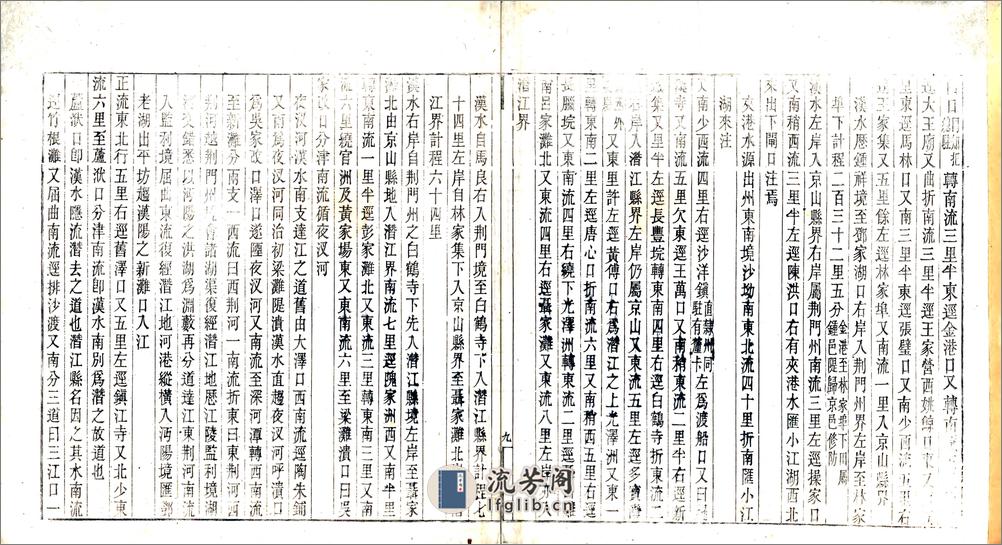 轉南流三里半東逕金港口又轉南
逕大王廟又曲折南流三里半逕王家營西姚
里東逕馬林口又南三里半東逕張壁口又南少西流五里右
逕王家集又南五里餘左逕林家埠又南流一里入京山縣界
埠下計程二百三十二里五分金港至林家埠下田屬鍾邑隄歸京邑修防
漢水歷鍾祥境至鄧家湖口右岸入荆門州界左岸至林家
埠入京山縣界右岸屬荆門州南流三里左逕操家口
又南稍西流三里半左逕陳洪口右有夾港水匯小江湖西北
來出下閘口注焉
支港水源出州東南境沙坳南東北流四十里折南匯小江
湖來注
又南少西流四里右逕沙洋鎮直隸州同駐有釐卡左為渡船口又曰
寺又南流五里欠東逕王萬口又南稍東流二里半右逕新
逕集又東流三里左逕長豐垸轉東南四里右逕白鶴寺
右岸入潛江縣界左岸仍屬京山又東流五里左逕多寶灣
外又東里許左逕黃傅口右為潛江之上光澤洲又東一
里轉東南二里左逕唐心口折南流六里又南稍西五里右
逕腦垸又東南流四里右繞下光澤洲轉東流二里逕
南呂家灘北又東流四里右逕聶家灘又東流八里左岸永入
潛江界
漢水自馬良右入荆門境至白鶴寺下入潛江縣界計程七
十四里左岸自林家集下入京山縣界至聶家灘北岸
江界計程六十四里
漢水右岸自荆門州之白鶴寺下先入潛江縣境左岸至聶家
灘北由京山縣地入潛江界南流七里逕隗家洲西又南半
轉東南流一里半逕彭家灘北又東流三里轉東南三里又南
流六里繞官洲及黃家場東又東南流六里至梁灘潰口曰吳
家改口分津南流循夜汊河
夜汊河漢水南支達江之道舊由大澤口西南流逕陶朱鋪
又南為夜汊河同治初梁灘隄潰漢水直趨夜汊河呼潰口
為吳家改口澤口遂堙夜汊河又南流至深河潭轉西南流
至新灘分兩支一西流曰西荆河一南流折東曰東荆河西
荆河遠荆門州境會諸湖渠復經潛江地歷江陵監利境湖
河交錯悉以河陽之洪湖為淵藪再分道達江東荆河南流
入監利境屈曲東流復經潛江地河港縱橫入沔陽境匯
老湖出平坊趨漢陽之新灘口入江
正流東北行五里右逕舊澤口又五里左逕鎮江寺又北少東
流六里至蘆洑口分津南流即漢水南別為潛之故道也
蘆洑口即漢水隱流潛去之道也潛江縣名因之其水南流
逕竹根灘又屈曲南流逕排沙渡又南分三道曰三江口一
九
流芳阁
lfglib.com